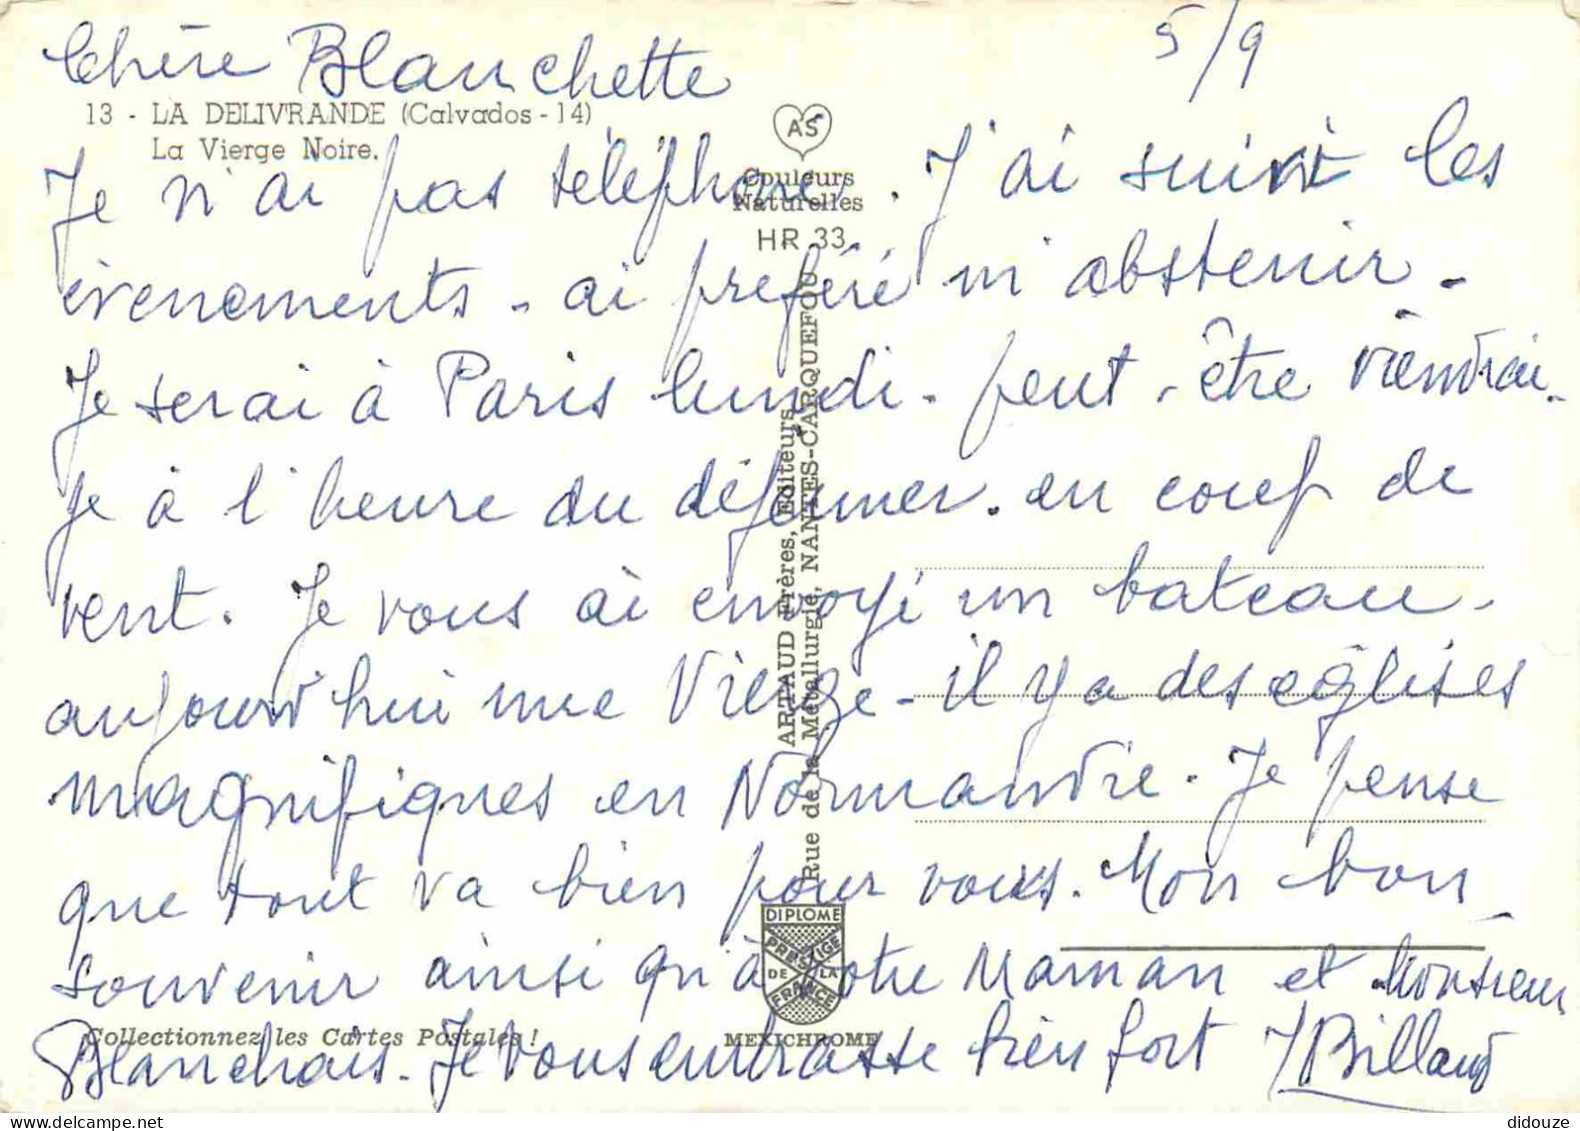 5/9
Chère Blanchette
13 - LA DELIVRANDE (Calvados - 14)
La Vierge Noire.
AS
Couleurs
Naturelles
HR 33
Je n'ai pas téléphoné. J'ai suivi les
évenements - ai preféré m'abstenir -
Je serai à Paris lundi - peut-être viendrai-
je à l'heure du déjeuner. en coup de
vent. Je vous ai envoyé un bateau -
aujourd'hui une Vierge - il y a des églises
magnifiques en Normandie. Je pense
que tout va bien pour vous. Mon bon
souvenir ainsi qu'à votre Maman et Monsieur
Blanchais. Je vous embrasse bien fort J Billaud
ARTAUD Frères, Editeurs
Rue de la Métallurgie, NANTES-CARQUEFOU
DIPLOME
PRESTIGE
DE LA
FRANCE
MEXICHROME
Collectionnez les Cartes Postales !
didouze